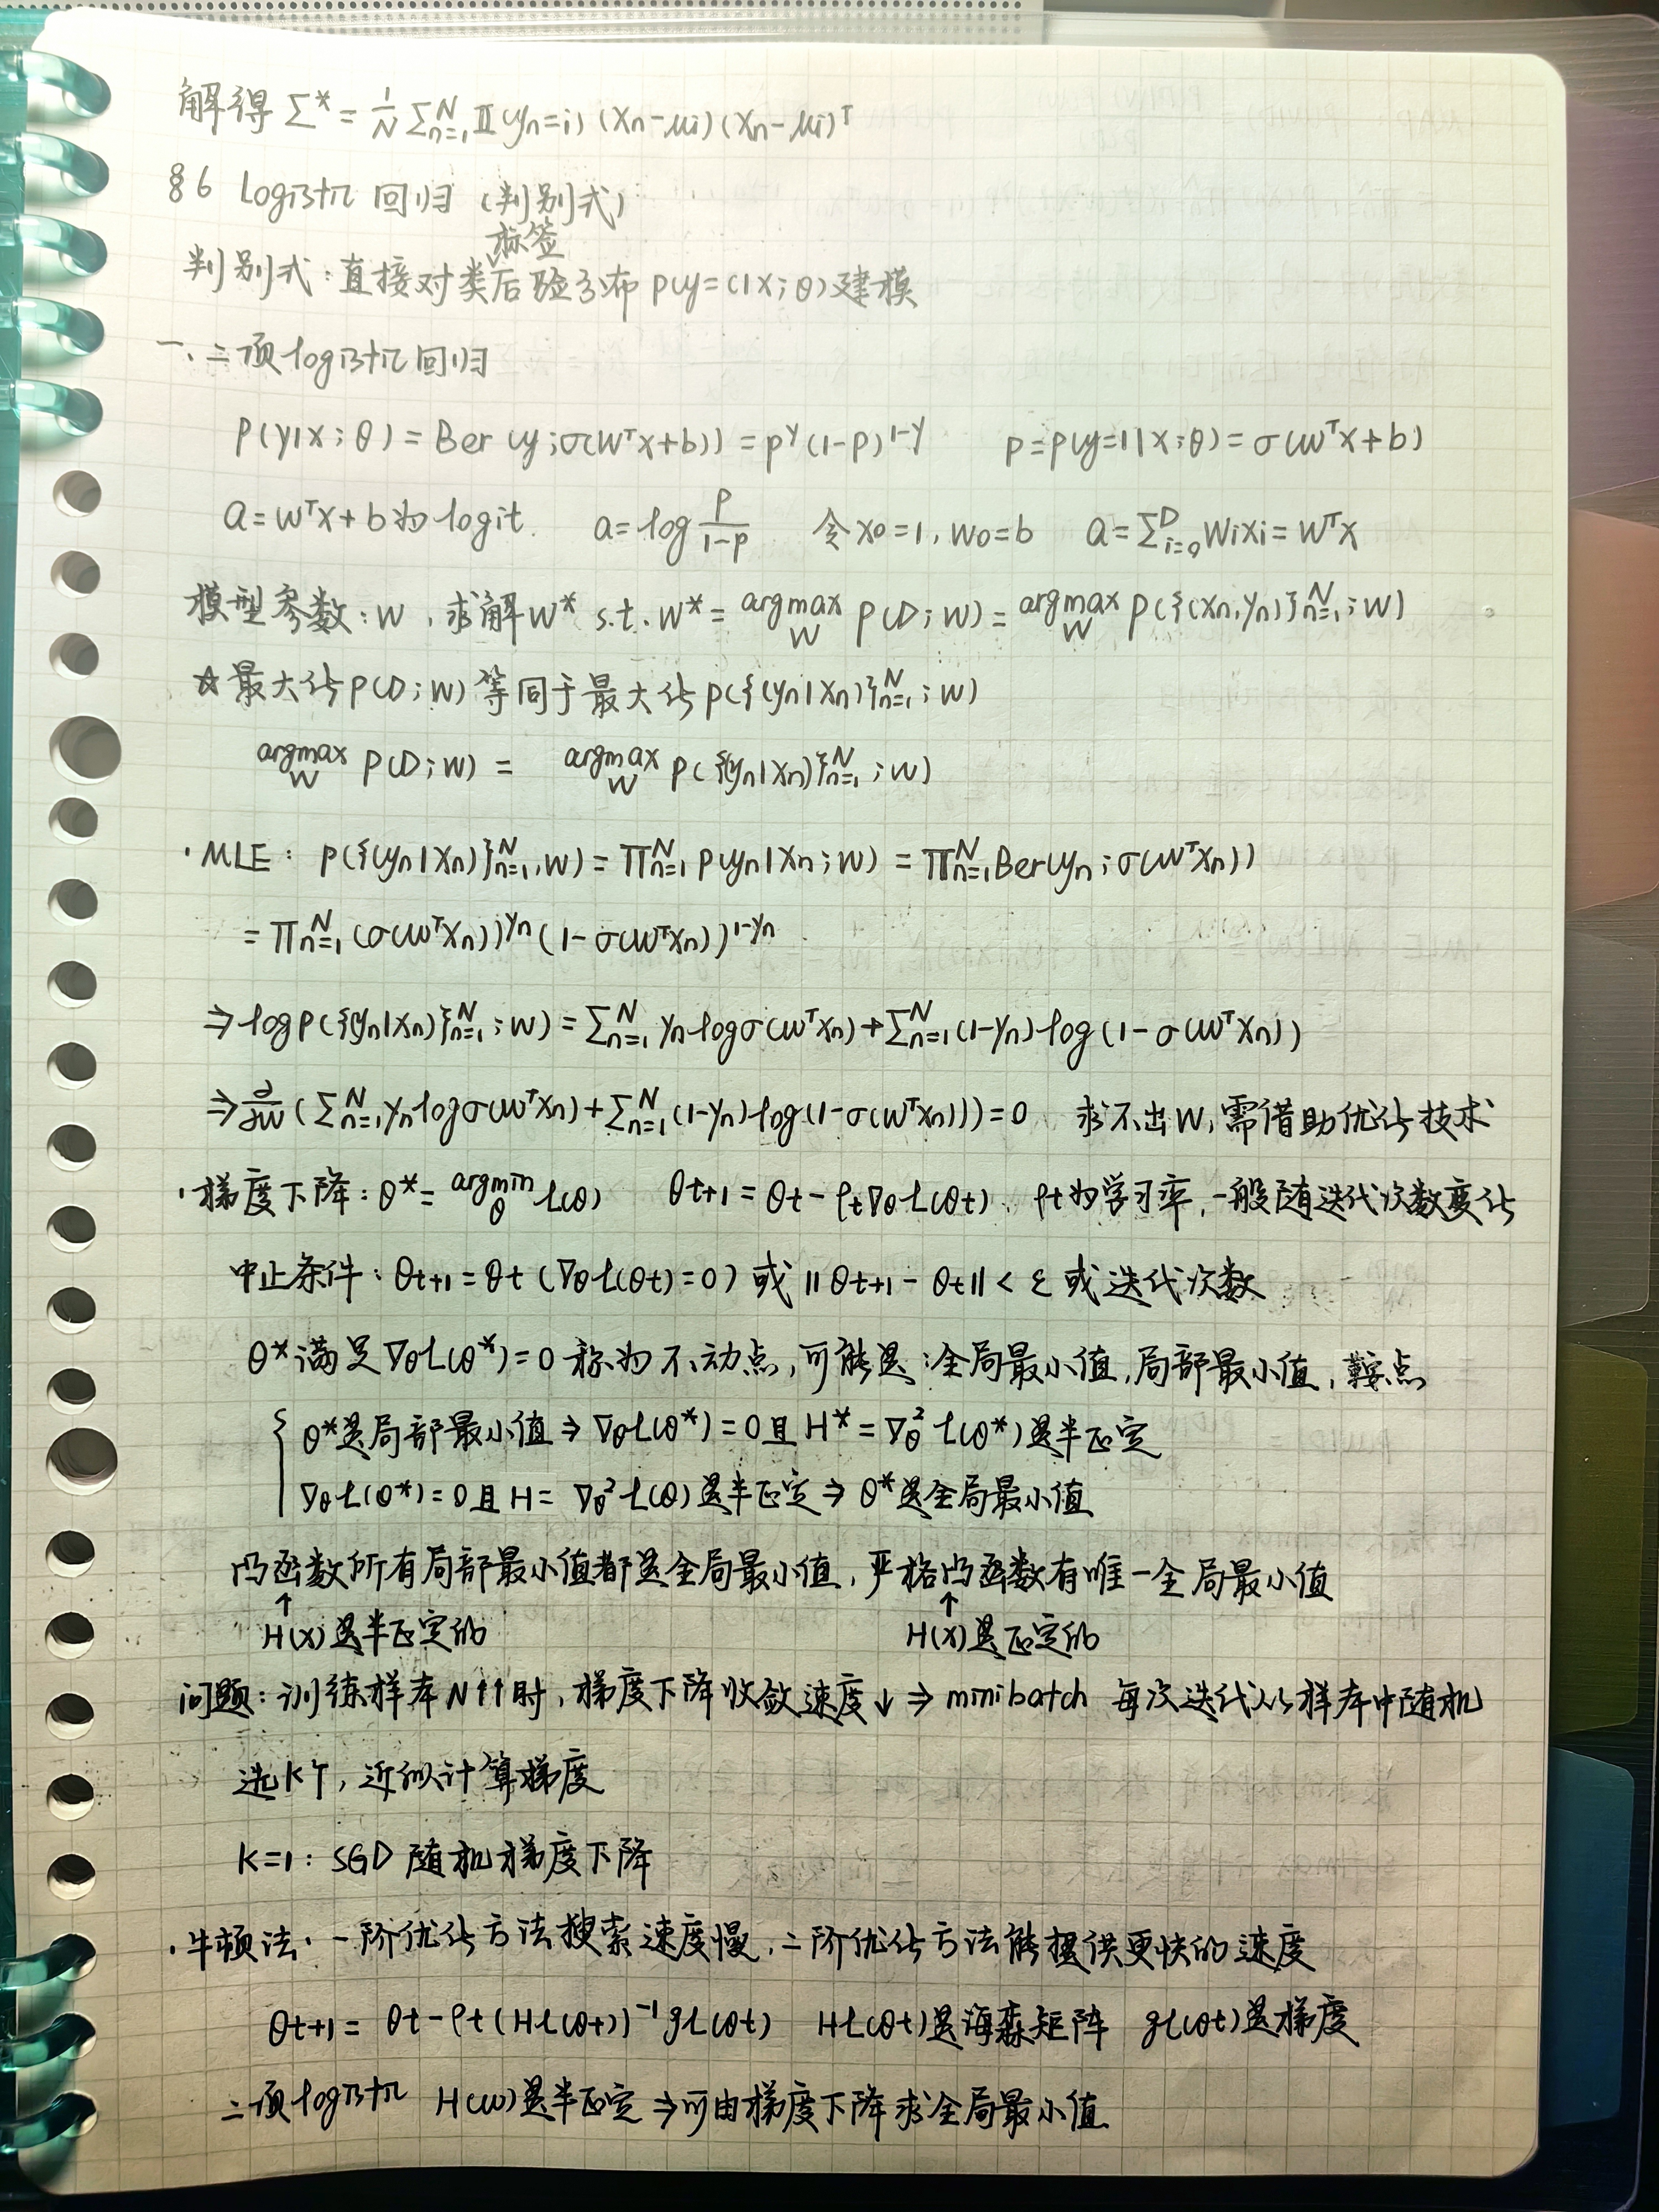 解得 Σ* = 1/N Σ_{n=1}^N 𝕀(yn=i) (xn-μi)(xn-μi)^T
§6 Log阝卄几 回归 (判别式)
标签
判别式: 直接对类后验分布 p(y=c|x;θ)建模
一、二项log阝卄几回归
p(y|x;θ) = Ber(y;σ(w^Tx+b)) = p^y(1-p)^{1-y}  p=p(y=1|x;θ)=σ(w^Tx+b)
a=w^Tx+b为logit.  a=log p/(1-p)  令x0=1, w0=b  a=Σ_{i=0}^D wixi=w^Tx
模型参数: w, 求解w* s.t. w* = argmax_w p(D;w) = argmax_w p({(xn,yn)}_{n=1}^N;w)
☆最大化p(D;w)等同于最大化p({(yn|xn)}_{n=1}^N;w)
argmax_w p(D;w) = argmax_w p({yn|xn)}_{n=1}^N;w)
·MLE: p({(yn|xn)}_{n=1}^N,w) = Π_{n=1}^N p(yn|xn;w) = Π_{n=1}^N Ber(yn;σ(w^Txn))
= Π_{n=1}^N (σ(w^Txn))^{yn}(1-σ(w^Txn))^{1-yn}
⇒log p({yn|xn)}_{n=1}^N;w) = Σ_{n=1}^N yn logσ(w^Txn)+Σ_{n=1}^N(1-yn)log(1-σ(w^Txn))
⇒∂/∂w (Σ_{n=1}^N yn logσ(w^Txn)+Σ_{n=1}^N(1-yn)log(1-σ(w^Txn)))=0  求不出w, 需借助优化技术
·梯度下降: θ*= argmin_θ L(θ)  θt+1=θt-ρt∇θL(θt). ρt为学习率, 一般随迭代次数变化
中止条件: θt+1=θt (∇θL(θt)=0) 或 ||θt+1-θt||<ε 或迭代次数
θ*满足∇θL(θ*)=0称为不动点, 可能是:全局最小值,局部最小值,鞍点
{ θ*是局部最小值⇒∇θL(θ*)=0且H*=∇θ²L(θ*)是半正定
∇θL(θ*)=0且H=∇θ²L(θ)是半正定⇒θ*是全局最小值
凸函数所有局部最小值都是全局最小值, 严格凸函数有唯一全局最小值
↑ ↑
H(x)是半正定的  H(x)是正定的
问题: 训练样本N↑↑时, 梯度下降收敛速度↓⇒minibatch 每次迭代从样本中随机
选K个, 近似计算梯度
K=1: SGD 随机梯度下降
·牛顿法·一阶优化方法搜索速度慢, 二阶优化方法能提供更快的速度
θt+1= θt-ρt(HL(θt))^{-1}gL(θt)  HL(θt)是海森矩阵 gL(θt)是梯度
二项log阝卄几 H(w)是半正定⇒可由梯度下降求全局最小值